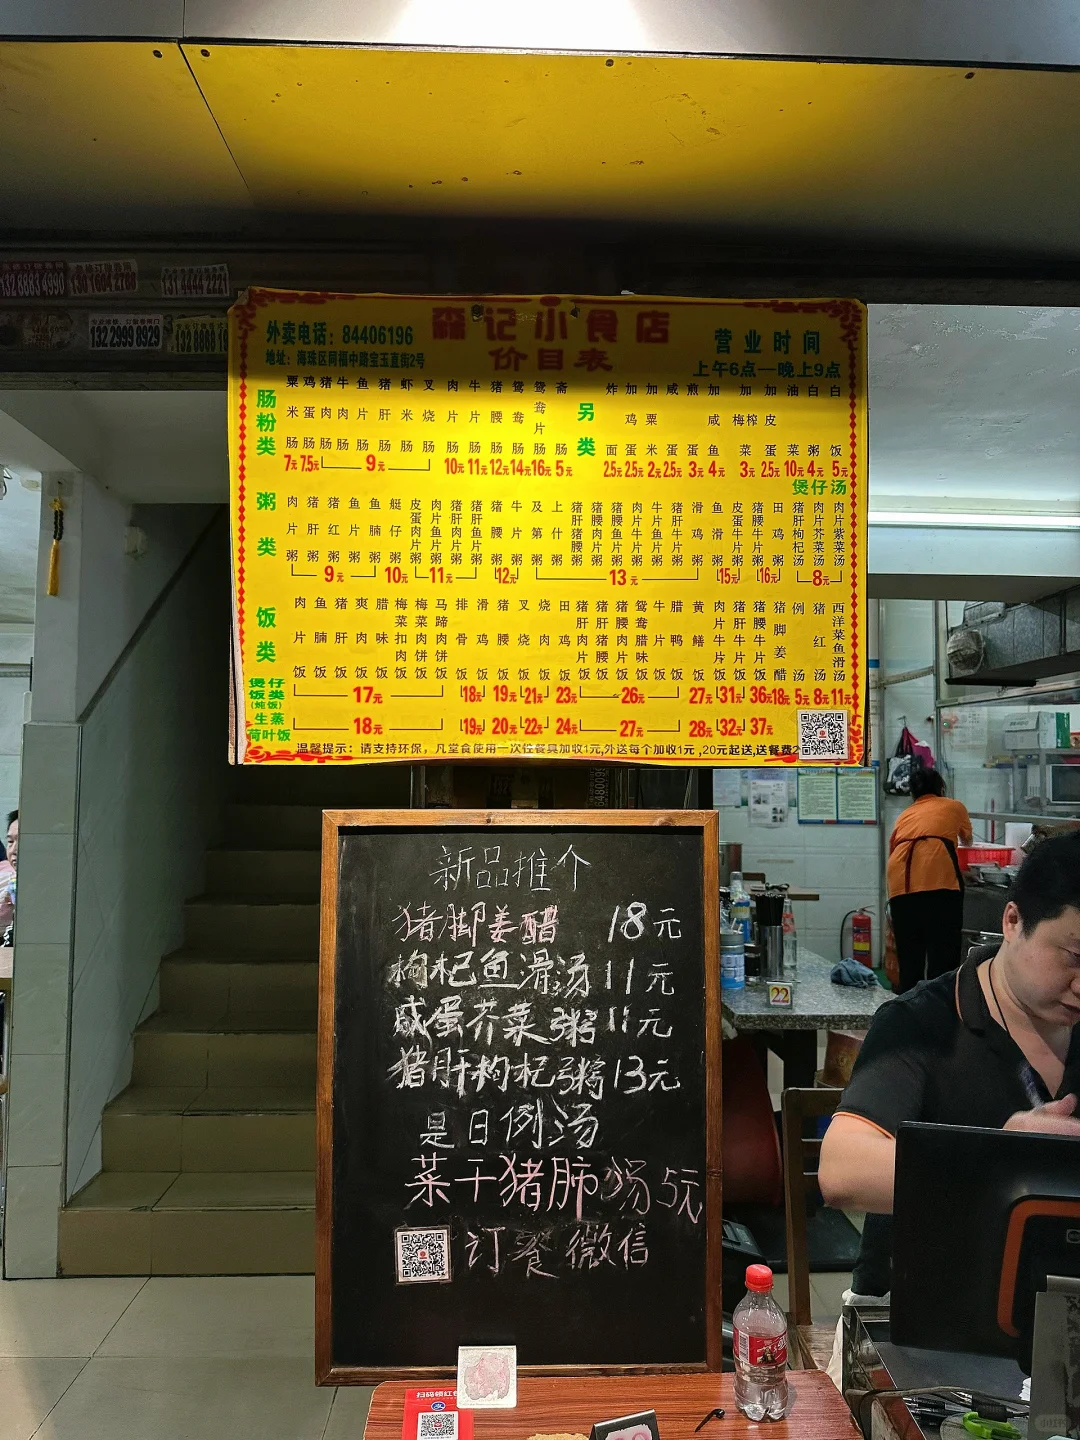 132 8883 4990
130 1604 2788
131 4444 2221
132 2999 8929
外卖电话：84406196
森记小食店
营业时间
地址：海珠区同福中路宝玉直街2号
价目表
上午6点—晚上9点
肠粉类
粟米肠
鸡蛋肠
猪肉肠
牛肉肠
鱼片肠
猪肝肠
虾米肠
叉烧肠
肉片肠
牛片肠
猪腰肠
鸳鸯肠
鸳鸯片肠
斋肠
7元 7.5元 9元 10元 11元 12元 14元 16元 5元
另类
炸面
加鸡蛋
加粟米
咸蛋
煎蛋
加鱼
加咸菜
加梅榨菜
油菜
白粥
白饭
2.5元 2.5元 2元 2.5元 3元 4元 3元 2.5元 10元 4元 5元
煲仔汤
粥类
肉片粥
猪肝粥
猪红粥
鱼片粥
鱼腩粥
艇仔粥
皮蛋肉片粥
猪片鱼片粥
猪肝肉片粥
猪肝鱼片粥
猪腰粥
牛片粥
及第粥
上什粥
9元 10元 11元 12元 13元 15元 16元 8元
饭类
肉片饭
鱼腩饭
猪肝饭
爽肉饭
腊味饭
梅菜扣肉饭
梅菜肉饼饭
马蹄肉饼饭
排骨饭
滑鸡饭
猪腰饭
叉烧饭
烧肉饭
田鸡饭
猪肝肉片饭
猪肝猪腰饭
猪腰肉片饭
鸳鸯腊味饭
牛片饭
腊鸭饭
黄鳝饭
肉片牛片饭
猪肝牛片饭
猪腰牛片饭
猪脚姜醋
例汤
猪红汤
西洋菜鱼滑汤
煲仔饭类（炖饭）
17元 18元 19元 21元 23元 26元 27元 31元 36元 18元 5元 8元 11元
生蒸荷叶饭
18元 19元 20元 22元 24元 27元 28元 32元 37元
温馨提示：请支持环保，凡堂食使用一次性餐具加收1元,外送每个加收1元,20元起送,送餐费2
新品推介
猪脚姜醋 18元
枸杞鱼滑汤 11元
咸蛋芥菜粥 11元
猪肝枸杞粥 13元
是日例汤
菜干猪肺汤 5元
订餐微信
22
扫码领红包